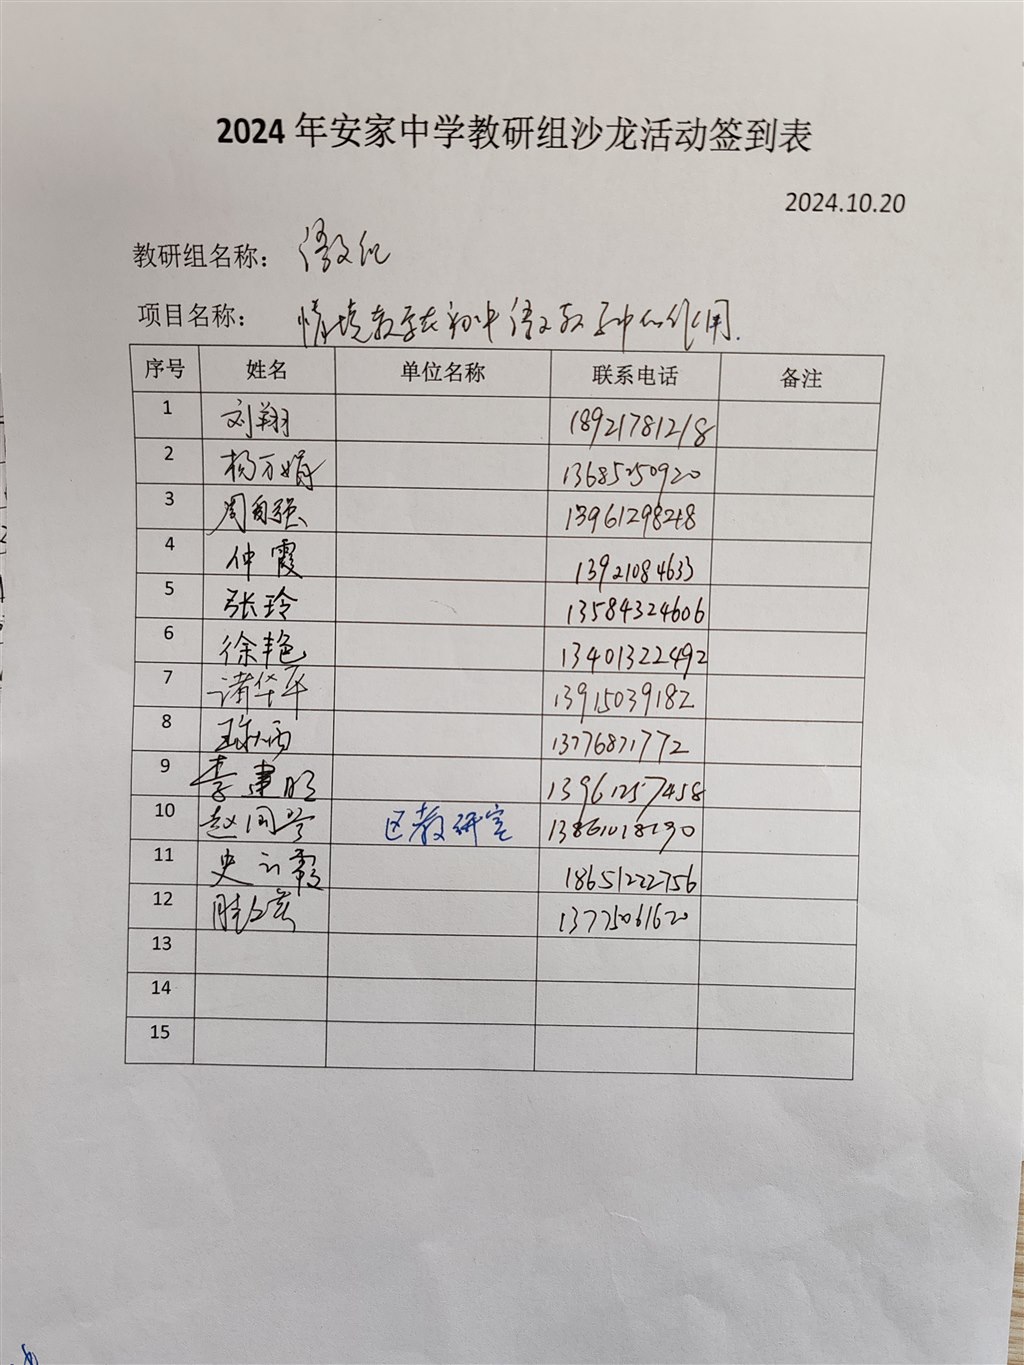 2024年安家中学教研组沙龙活动签到表
2024.10.20
教研组名称： 语文组
项目名称： 情境教学在初中语文教学中的作用.
序号 姓名 单位名称 联系电话 备注
1 刘翔 18921781218
2 杨万娟 13685250920
3 周自强 13961298248
4 仲霞 13921084633
5 张玲 13584324606
6 徐艳 13401322492
7 诸华平 13915039182
8 13776871772
9 李建明 13961257458
10 赵同芳 区教研室 13861018190
11 史云霞 18651222756
12 13775061620
13
14
15